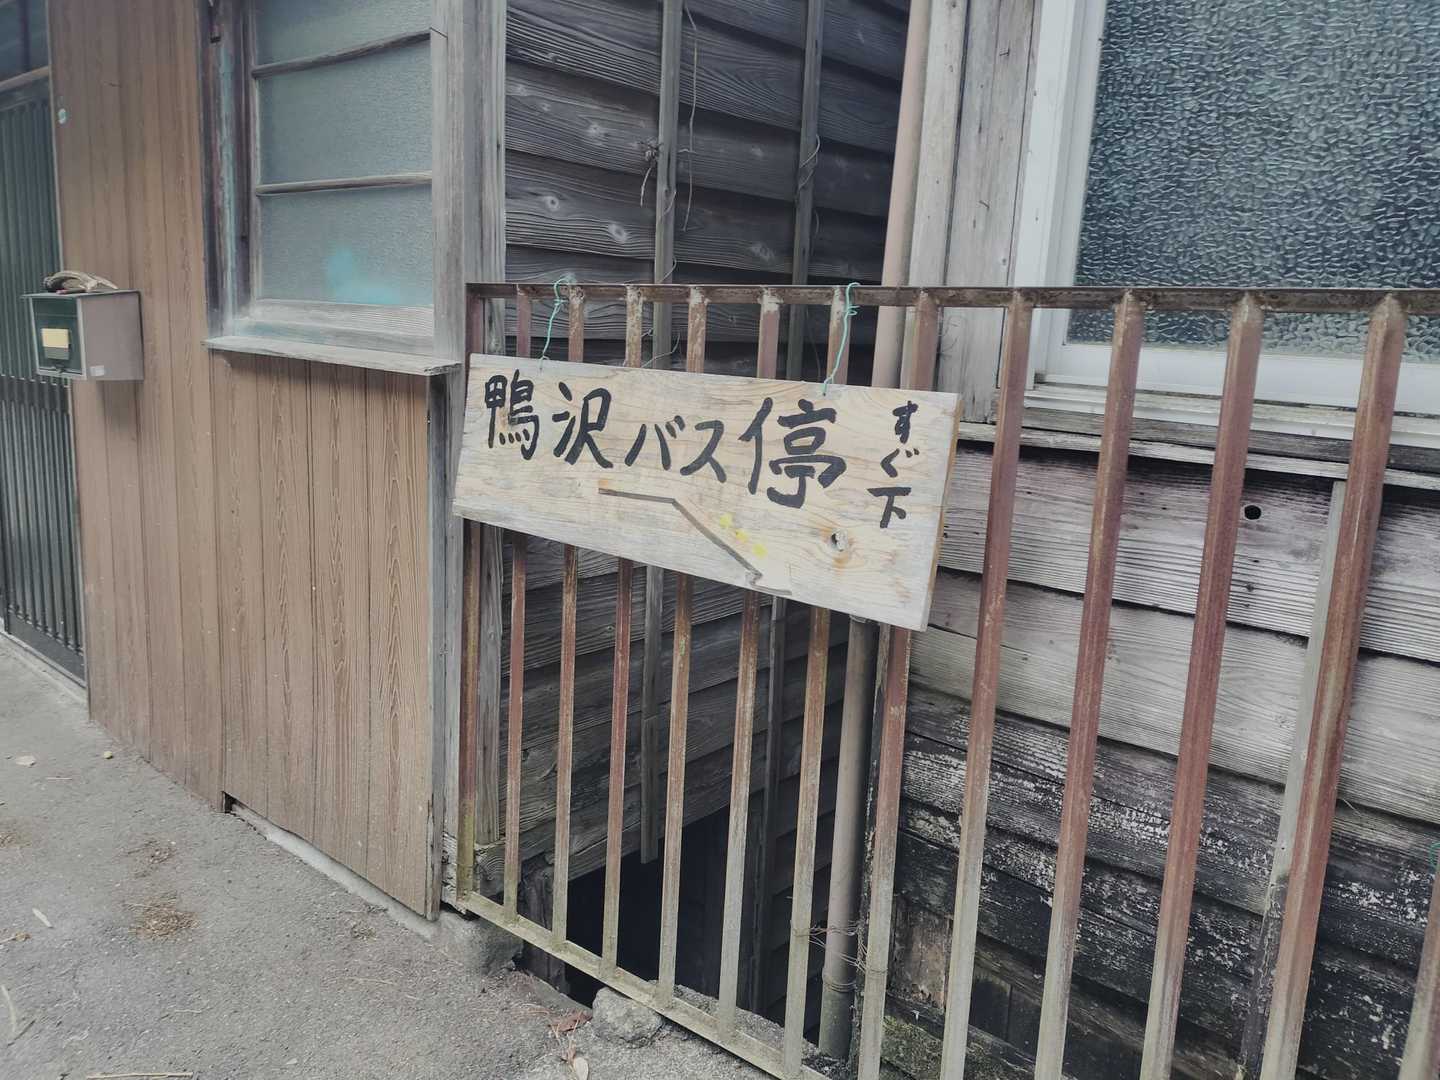 鴨沢バス停
すぐ下